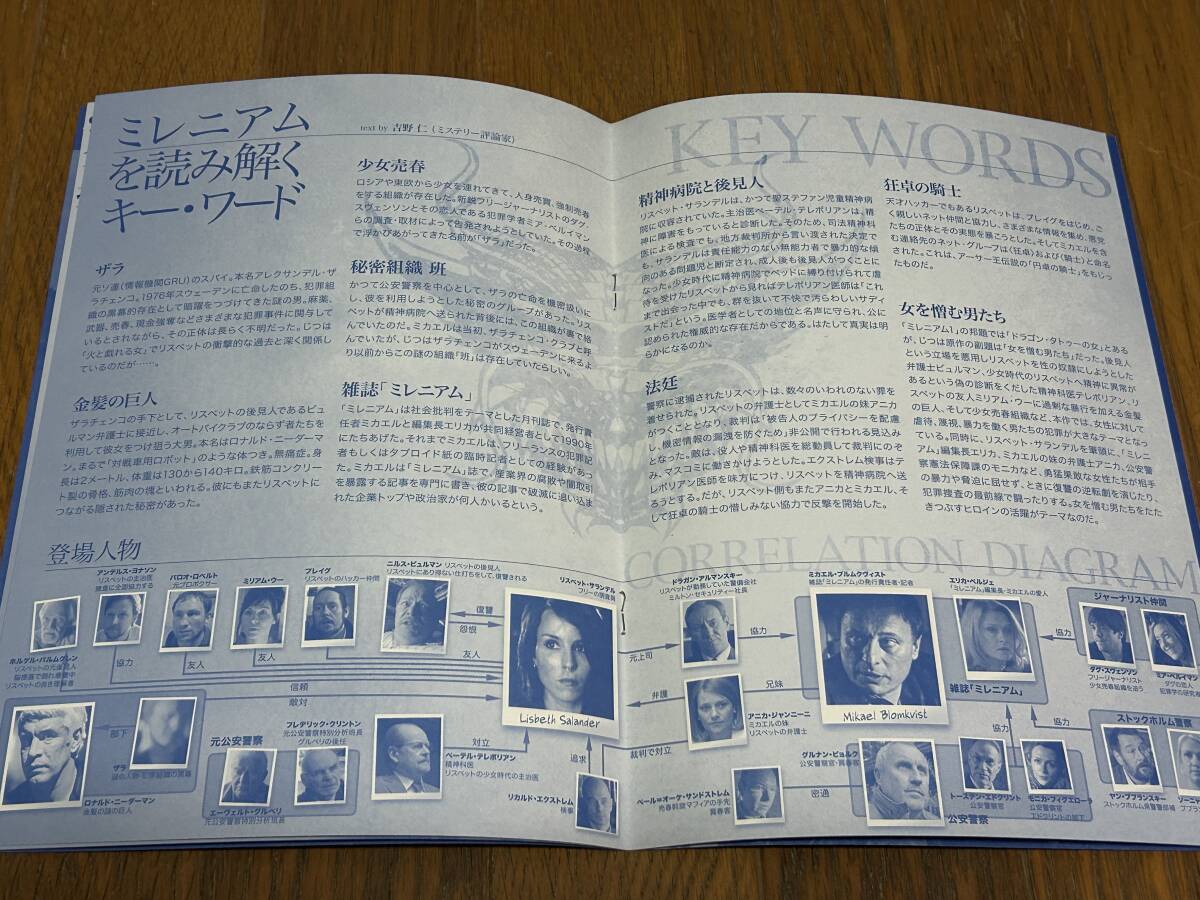 ミレニアム
を読み解く
キー・ワード
text by 吉野 仁（ミステリー評論家）
KEY WORDS
ザラ
元ソ連（情報機関GRU）のスパイ。本名アレクサンデル・ザ
ラチェンコ。1976年スウェーデンに亡命したのち、犯罪組
織の黒幕的存在として暗躍をつづけてきた謎の男。麻薬、
武器、売春、現金強奪などさまざまな犯罪事件に関与して
いるとされながら、その正体は長らく不明だった。じつは
「火と戯れる女」でリスベットの衝撃的な過去と深く関係し
ているのだが……。
金髪の巨人
ザラチェンコの手下として、リスベットの後見人であるビュ
ルマン弁護士に接近し、オートバイクラブのならず者たちを
利用して彼女をつけ狙う大男。本名はロナルド・ニーダーマ
ン。まるで「対戦車用ロボット」のような体つき。無痛症。身
長は2メートル、体重は130から140キロ。鉄筋コンクリー
ト製の骨格、筋肉の塊といわれる。彼にもまたリスベットに
つながる隠された秘密があった。
少女売春
ロシアや東欧から少女を連れてきて、人身売買、強制売春
をする組織が存在した。新鋭フリージャーナリストのダグ・
スヴェンソンとその恋人である犯罪学者ミア・ベルイマン
らの調査・取材によって告発されようとしていた。その過程
で浮かびあがってきた名前が「ザラ」だった。
秘密組織 班
かつて公安警察を中心として、ザラの亡命を機密扱いに
し、彼を利用しようとした秘密のグループがあった。リス
ベットが精神病院へ送られた背後には、この組織が裏で絡
んでいたのだ。ミカエルは当初、ザラチェンコ・クラブと呼
んでいたが、じつはザラチェンコがスウェーデンに来るよ
り以前からこの謎の組織「班」は存在していたらしい。
雑誌「ミレニアム」
「ミレニアム」は社会批判をテーマとした月刊誌で、発行責
任者ミカエルと編集長エリカが共同経営者として1990年
にたちあげた。それまでミカエルは、フリーランスの犯罪記
者もしくはタブロイド紙の臨時記者としての経験があっ
た。ミカエルは「ミレニアム」誌で、産業界の腐敗や闇取引
を暴露する記事を専門に書き、彼の記事で破滅に追い込ま
れた企業トップや政治家が何人かいるという。
精神病院と後見人
リスベット・サランデルは、かつて聖ステファン児童精神病
院に収容されていた。主治医ペーテル・テレボリアンは、精
神に障害をもっていると診断した。そのため、司法精神科
医による検査でも、地方裁判所から言い渡された決定で
も、サランデルは責任能力のない無能力者で暴力的な傾
向のある問題児と断定され、成人後も後見人がつくことに
なった。少女時代に精神病院でベッドに縛り付けられて虐
待を受けたリスベットから見ればテレボリアン医師は「これ
まで出会った中でも、群を抜いて不快で汚らわしいサディ
ストだ」という。医学者としての地位と名声に守られ、公に
認められた権威的な存在だからである。はたして真実は明
らかになるのか。
法廷
警察に逮捕されたリスベットは、数々のいわれのない罪を
着せられた。リスベットの弁護士としてミカエルの妹アニカ
がつくこととなり、裁判は「被告人のプライバシーを配慮
し、機密情報の漏洩を防ぐため」非公開で行われる見込み
となった。敵は、役人や精神科医を総動員して裁判にのぞ
み、マスコミに働きかけようとした。エクストレム検事はテ
レボリアン医師を味方につけ、リスベットを精神病院へ送
ろうとする。だが、リスベット側もまたアニカとミカエル、そ
して狂卓の騎士の惜しみない協力で反撃を開始した。
狂卓の騎士
天才ハッカーでもあるリスベットは、プレイグをはじめ、ご
く親しいネット仲間と協力し、さまざまな情報を集め、悪党
たちの正体とその実態を暴こうとした。そしてミカエルを含
む連絡先のネット・グループは〈狂卓〉および〈騎士〉と命名
された。これは、アーサー王伝説の「円卓の騎士」をもじっ
たものだ。
女を憎む男たち
「ミレニアム1」の邦題では「ドラゴン・タトゥーの女」とある
が、じつは原作の副題は「女を憎む男たち」だった。後見人
という立場を悪用しリスベットを性の奴隷にしようとした
弁護士ビュルマン、少女時代のリスベットへ精神に異常が
あるという偽の診断をくだした精神科医テレボリアン、リ
スベットの友人ミリアム・ウーに過剰な暴行を加える金髪
の巨人、そして少女売春組織など、本作では、女性に対して
虐待、蔑視、暴力を働く男たちの犯罪が大きなテーマとなっ
ている。同時に、リスベット・サランデルを筆頭に、「ミレニ
アム」編集長エリカ、ミカエルの妹の弁護士アニカ、公安警
察憲法保障課のモニカなど、勇猛果敢な女性たちが相手
の暴力や脅迫に屈せず、ときに復讐の逆転劇を演じたり、
犯罪捜査の最前線で闘ったりする。女を憎む男たちをたた
きつぶすヒロインの活躍がテーマなのだ。
登場人物
CORRELATION DIAGRAM
アンデルス・ヨナソン
リスベットの主治医
捜査に全面協力する
パロオ・ロベルト
元プロボクサー
ミリアム・ウー
プレイグ
リスベットのハッカー仲間
ニルス・ビュルマン リスベットの後見人
リスベットにあり得ない仕打ちをして、復讐される
リスベット・サランデル
フリーの調査員
ドラガン・アルマンスキー
リスベットが勤務していた警備会社
ミルトン・セキュリティー社長
ミカエル・ブルムクヴィスト
雑誌「ミレニアム」の発行責任者・記者
エリカ・ベルジェ
「ミレニアム」編集長・ミカエルの愛人
ジャーナリスト仲間
復讐
怨恨
協力
友人
友人
友人
信頼
敵対
元上司
協力
協力
弁護
兄妹
ホルゲル・パルムグレン
リスベットの元後見人
脳梗塞で倒れ療養中
リスベットの良き理解者
Lisbeth Salander
Mikael Blomkvist
雑誌「ミレニアム」
ダグ・スヴェンソン
フリージャーナリスト
少女売春組織を追う
ミア・ベルイマン
ダグの恋人
犯罪学の研究者
部下
元公安警察
フレデリック・クリントン
元公安警察特別分析班長
グルベリの後任
対立
ペーテル・テレボリアン
精神科医
リスベットの少女時代の主治医
追求
裁判で対立
アニカ・ジャンニーニ
ミカエルの妹
リスベットの弁護士
協力
協力
ストックホルム警察
ザラ
謎の人物・犯罪組織の黒幕
ロナルド・ニーダーマン
金髪の謎の巨人
エーヴェルト・グルベリ
元公安警察特別分析班長
リカルド・エクストレム
検事
ペール=オーケ・サンドストレム
売春斡旋マフィアの手先
買春客
密通
グルナン・ビョルク
公安警察官・買春客
トーステン・エドクリント
公安警察官
モニカ・フィグエローラ
公安警察官
エドクリントの部下
公安警察
ヤン・ブブランスキー
ストックホルム県警警部補